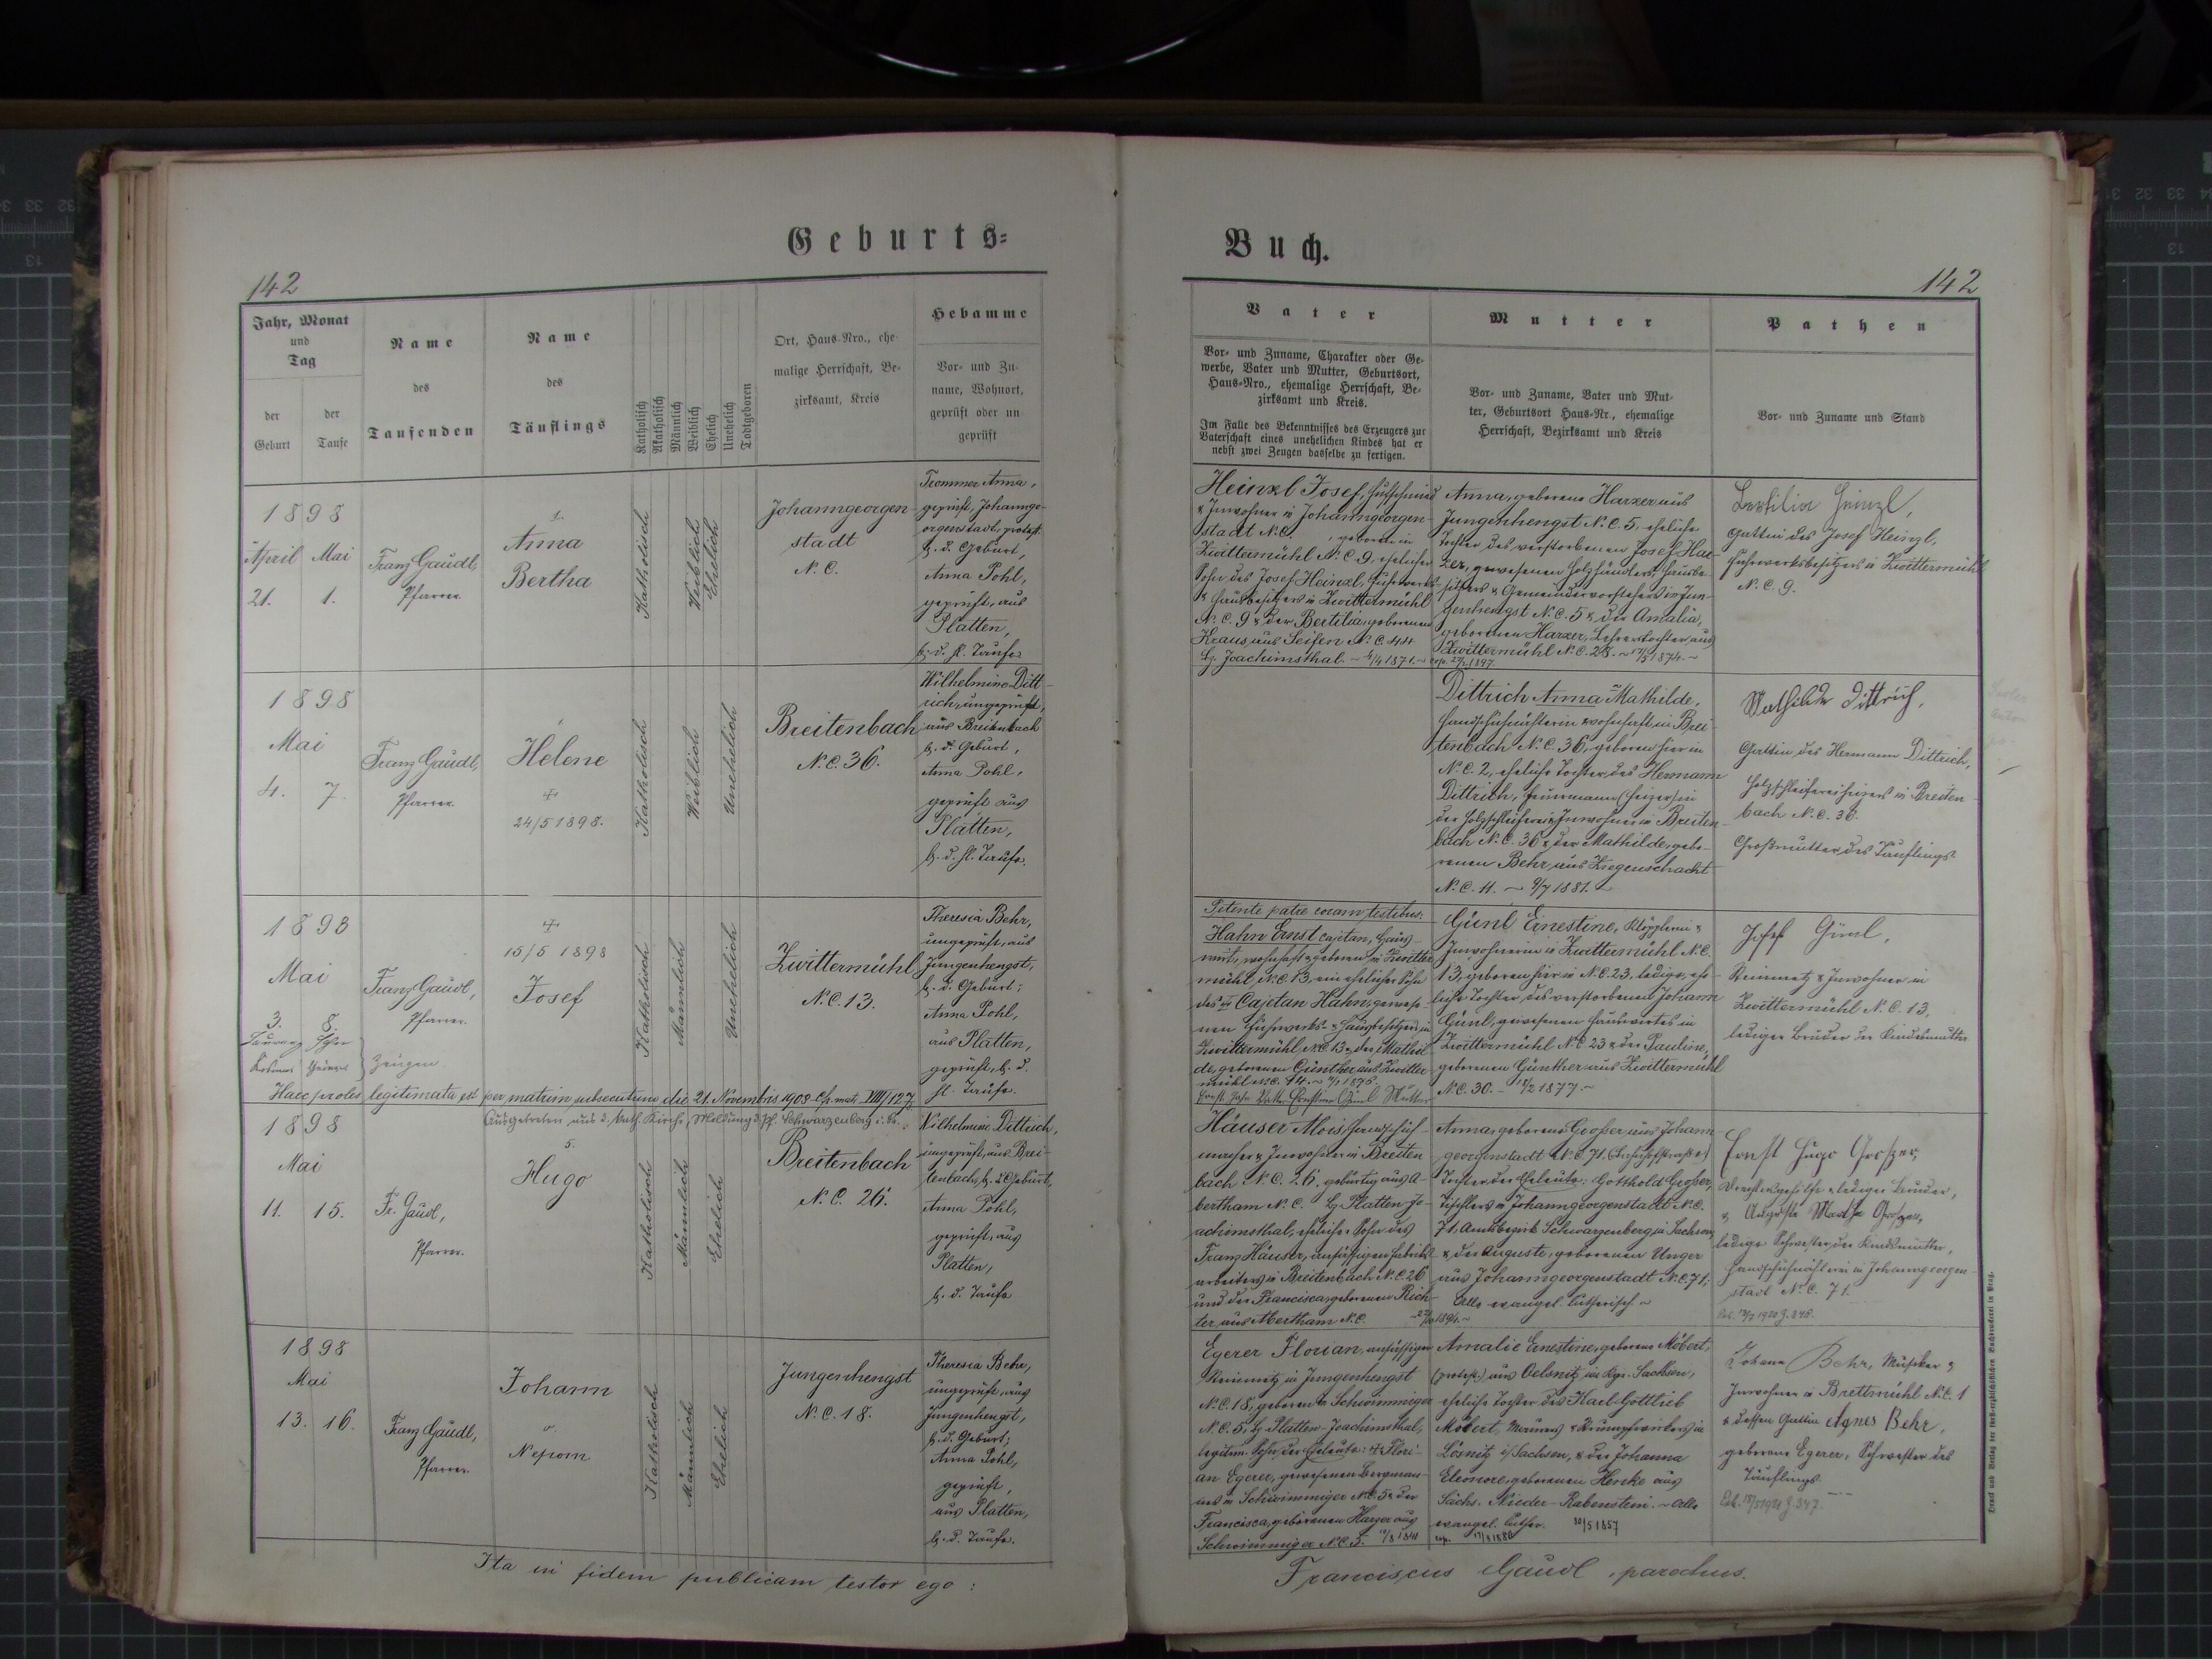 Geburts=
Buch.
142
142
Jahr, Monat
und
Tag
der
Geburt
der
Taufe
Name
des
Taufenden
Name
des
Täuflings
Katholisch
Akatholisch
Männlich
Weiblich
Ehelich
Unehelich
Todtgeboren
Ort, Haus-Nro., ehe-
malige Herrschaft, Be-
zirksamt, Kreis
Hebamme
Vor- und Zu-
name, Wohnort,
geprüft oder un-
geprüft
Vater
Vor- und Zuname, Charakter oder Ge-
werbe, Vater und Mutter, Geburtsort,
Haus-Nro., ehemalige Herrschaft, Be-
zirksamt und Kreis.
Im Falle des Bekenntnisses des Erzeugers zur
Vaterschaft eines unehelichen Kindes hat er
nebst zwei Zeugen dasselbe zu fertigen.
Mutter
Vor- und Zuname, Vater und Mut-
ter, Geburtsort Haus-Nr., ehemalige
Herrschaft, Bezirksamt und Kreis
Pathen
Vor- und Zuname und Stand
1898
April Mai
21. 1.
Franz Gaudl,
Pfarrer.
1.
Anna
Bertha
Katholisch
Weiblich
Ehelich
Johanngeorgen-
stadt
N.C.
Trommer Anna,
geprüft, Johannge-
orgenstadt, protest.
b. d. Geburt,
Anna Pohl,
geprüft, aus
Platten,
b. d. hl. Taufe
Heinzl Josef, Hufschmied
& Inwohner in Johanngeorgen-
stadt N.C. , geboren in
Zwittermühl N.C. 9, ehelicher
Sohn des Josef Heinzl, Fuhrwerks-
& Hausbesitzers in Zwittermühl
N.C. 9 & der Bertilia, geborenen
Kraus aus Seifen N.C. 44
Bz. Joachimsthal. ~ 4/4 1871. ~
Anna, geborene Harzer aus
Jungenhengst N.C. 5, eheliche
Tochter des verstorbenen Josef Har-
zer, gewesenen Holzhändlers, Hausbe-
sitzers & Gemeindevorstehers in Jun-
genhengst N.C. 5 & der Amalia,
geborenen Harzer, Lehrerstochter aus
Zwittermühl N.C. 28. ~ 1874. ~
Heinzl,
Gattin des Josef Heinzl,
Fuhrwerksbesitzers in Zwittermühl
N.C. 9.
1898
Mai
4. 7.
Franz Gaudl,
Pfarrer.
Helene
+
24/5 1898.
Katholisch
Weiblich
Unehelich
Breitenbach
N.C. 36.
Wilhelmine Ditt-
rich, ungeprüft,
aus Breitenbach
b. d. Geburt,
Anna Pohl,
geprüft aus
Platten,
b. d. hl. Taufe.
Dittrich Anna Mathilde,
Handschuhnähterin wohnhaft in Brei-
tenbach N.C. 36, geboren hier in
N.C. 2, eheliche Tochter des Hermann
Dittrich, Feuermann (Heizer) in
der Holzschleiferei & Inwohner in Breiten-
bach N.C. 36 & der Mathilde, gebo-
renen Behr aus Ziegenschacht
N.C. 11. ~ 9/7 1881. ~
Mathilde Dittrich,
Gattin des Hermann Dittrich,
Holzschleifereiheizers in Breiten-
bach N.C. 36.
Großmutter des Täuflings
1898
Mai
3. 8.
Franz Gaudl,
Pfarrer.
Zeugen
+
15/5 1898
Josef
Katholisch
Männlich
Unehelich
Zwittermühl
N.C. 13.
Theresia Behr,
ungeprüft, aus
Jungenhengst,
b. d. Geburt;
Anna Pohl,
aus Platten,
geprüft, b. d.
hl. Taufe.
Petente patre coram testibus:
Hahn Ernst Cajetan, Haus-
wirt, wohnhaft & geboren in Zwitter-
mühl N.C. 13, ein ehelicher Sohn
des + Cajetan Hahn, gewese-
nen Fuhrwerks- & Hausbesitzers in
Zwittermühl N.C. 13 & der Mathil-
de, geborenen Günther aus Zwitter-
mühl N.C. 14. ~ 1875.
Günl Ernestine, Klöpplerin &
Inwohnerin in Zwittermühl N.C.
13, geboren hier in N.C. 23, ledige, ehe-
liche Tochter des verstorbenen Johann
Günl, gewesenen Hauswirtes in
Zwittermühl N.C. 23 & der Pauline,
geborenen Günther aus Zwittermühl
N.C. 30. 1877. ~
Josef Günl,
Steinmetz & Inwohner in
Zwittermühl N.C. 13,
lediger Bruder der Kindesmutter
Haec proles legitimata est per matrim. subsecutum die 21. Novembris 1908
Ausgetreten aus d. kath. Kirche, Meldung d. Pf. Schwarzenberg i. Sa.
1898
Mai
11. 15.
Fr. Gaudl,
Pfarrer.
5.
Hugo
Katholisch
Männlich
Ehelich
Breitenbach
N.C. 26.
Wilhelmine Dittrich,
ungeprüft, aus Brei-
tenbach, b. d. Geburt,
Anna Pohl,
geprüft, aus
Platten,
b. d. Taufe
Häuser Alois, Handschuh-
macher & Inwohner in Breiten-
bach N.C. 26, gebürtig aus A-
bertham N.C. Bz. Platten Jo-
achimsthal, ehelicher Sohn des
Franz Häuser, ansässigen Fabriks-
arbeiters in Breitenbach N.C. 26
und der Francisca, geborenen Rich-
ter, aus Abertham N.C.
Anna, geborene Großer aus Johann-
georgenstadt N.C. 71.
Tochter der Eheleute: Gotthold Großer,
Tischlers in Johanngeorgenstadt N.C.
71. Amtsbezirk Schwarzenberg in Sachsen,
& der Auguste, geborenen Unger
aus Johanngeorgenstadt N.C. 71;
Alle evangel. lutherisch. ~
Ernst Hugo Großer,
lediger Bruder,
& Auguste Martha Großer,
ledige Schwester der Kindsmutter,
Handschuhnähterin in Johanngeorgen-
stadt N.C. 71.
1898
Mai
13. 16.
Franz Gaudl,
Pfarrer.
Johann
v.
Nepom.
Katholisch
Männlich
Ehelich
Jungenhengst
N.C. 18.
Theresia Behr,
ungeprüft, aus
Jungenhengst,
b. d. Geburt;
Anna Pohl,
geprüft,
aus Platten,
b. d. Taufe.
Egerer Florian, ansässiger
Steinmetz in Jungenhengst
N.C. 18, geboren in Schwimmiger
N.C. 5, Bz. Platten-Joachimsthal,
legitim. Sohn der Eheleute: + Flori-
an Egerer, gewesenen Bergman-
nes in Schwimmiger N.C. 5 & der
Francisca, geborenen Harzer aus
Schwimmiger N.C. 5.
Amalie Ernestine, geborene Möbert,
(protest.) aus Oelsnitz im Kgr. Sachsen,
eheliche Tochter des Karl Gottlieb
Möbert, Maurers & Strumpfwirkers in
Lösnitz i/Sachsen, & der Johanna
Eleonore, geborenen Henke aus
Sächs. Nieder-Rabenstein. ~ Alle
evangel. luther. 20/5 1857
Johann Behr, Musiker &
Inwohner in Brettmühl N.C. 1
& dessen Gattin Agnes Behr,
geborene Egerer, Schwester des
Täuflings.
Ita in fidem publicam testor ego:
Franciscus Gaudl, parochus.